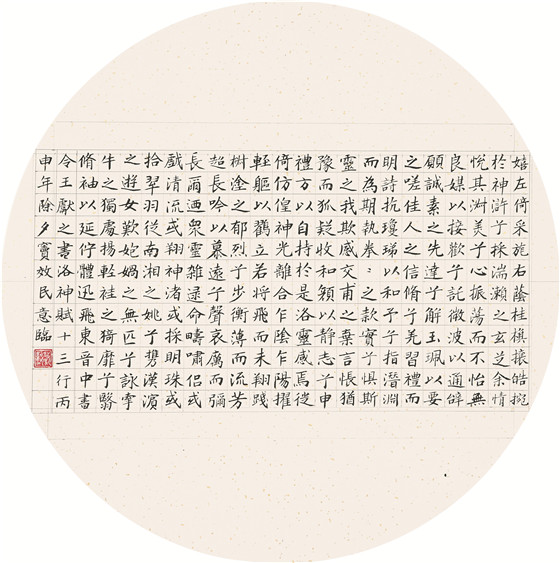 嬉左倚采旄右蔭桂旗攘皓捥
於神滸兮採湍瀨之玄芝余情
悅其淑美兮心振蕩而不怡無
良媒以接歡兮託微波以通辭
願誠素之先達兮解玉珮以要
之嗟佳人之信脩兮羌習禮而
明詩抗瓊珶以和予兮指潛淵
而為期執拳〻之款實兮懼斯
靈之我欺感交甫之棄言悵猶
豫而狐疑收和顏以靜志兮申
禮方以自持於是洛靈感焉徙
倚仿偟神光離合乍陰乍陽擢
輕軀以鶴立若將飛而未翔踐
椒塗之郁烈兮步衡薄而流芳
超長吟以慕遠兮聲哀厲而彌
長爾迺眾靈雜遝命疇嘯侶或
戲清流或翔神渚或採明珠或
拾翠羽從南湘之姚兮攜漢濱
之遊女歎媧之無匹兮詠牽
牛之獨處揚輕袿之猗靡兮翳
脩袖以延佇體迅飛東晉中書
令王獻之書洛神賦十三行丙
申年除夕竇效民意臨